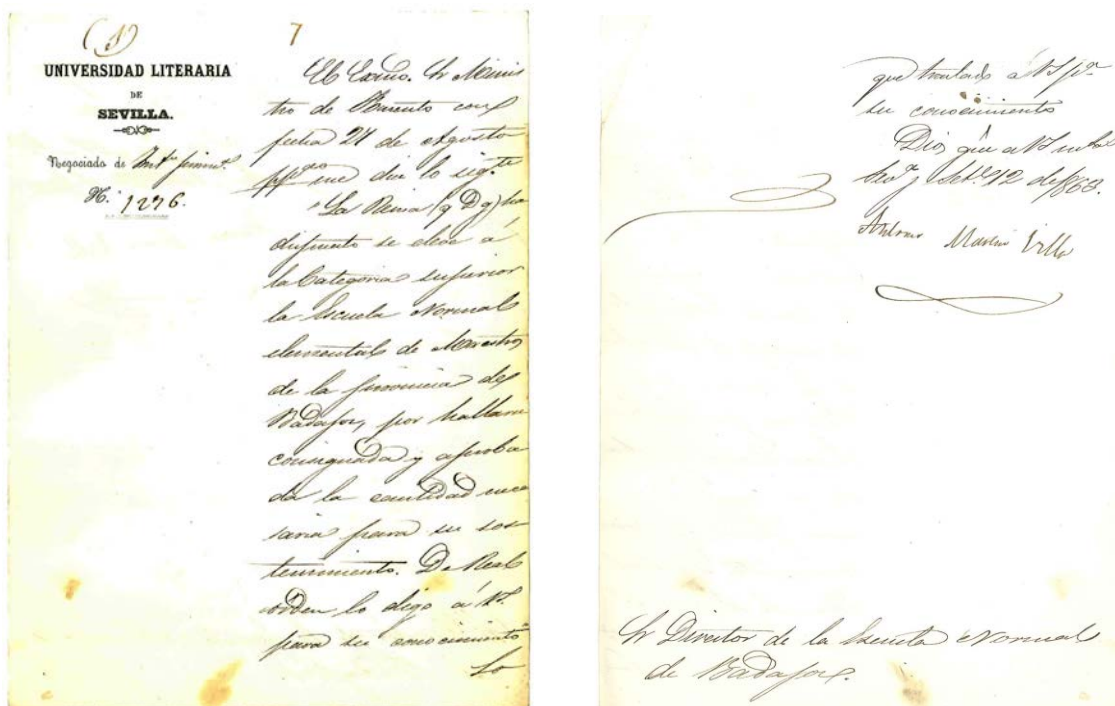 (1)
7
UNIVERSIDAD LITERARIA
DE
SEVILLA.
Negociado de Inst.ª primar.ª
N.º 1296.
El Excmo. Sr Minis
tro de Fomento con
fecha 21 de Agosto
ppdo me dice lo sig.te
"La Reina (q D g) ha
dispuesto se eleve á
la Categoria superior
la Escuela Normal
elemental de Maestros
de la provincia de
Badajoz, por hallarse
consignada y aproba
da la cantidad nece
saria para su sos
tenimiento. De Real
orden lo digo á V.
para su conocimiento"
Lo
que traslado á V S p.ª
su conocimiento
Dios gue á V S m.s a.s
Sev.ª Set.e 12 de 1863.
Antonio Martin Villa
Sr Director de la Escuela Normal
de Badajoz.